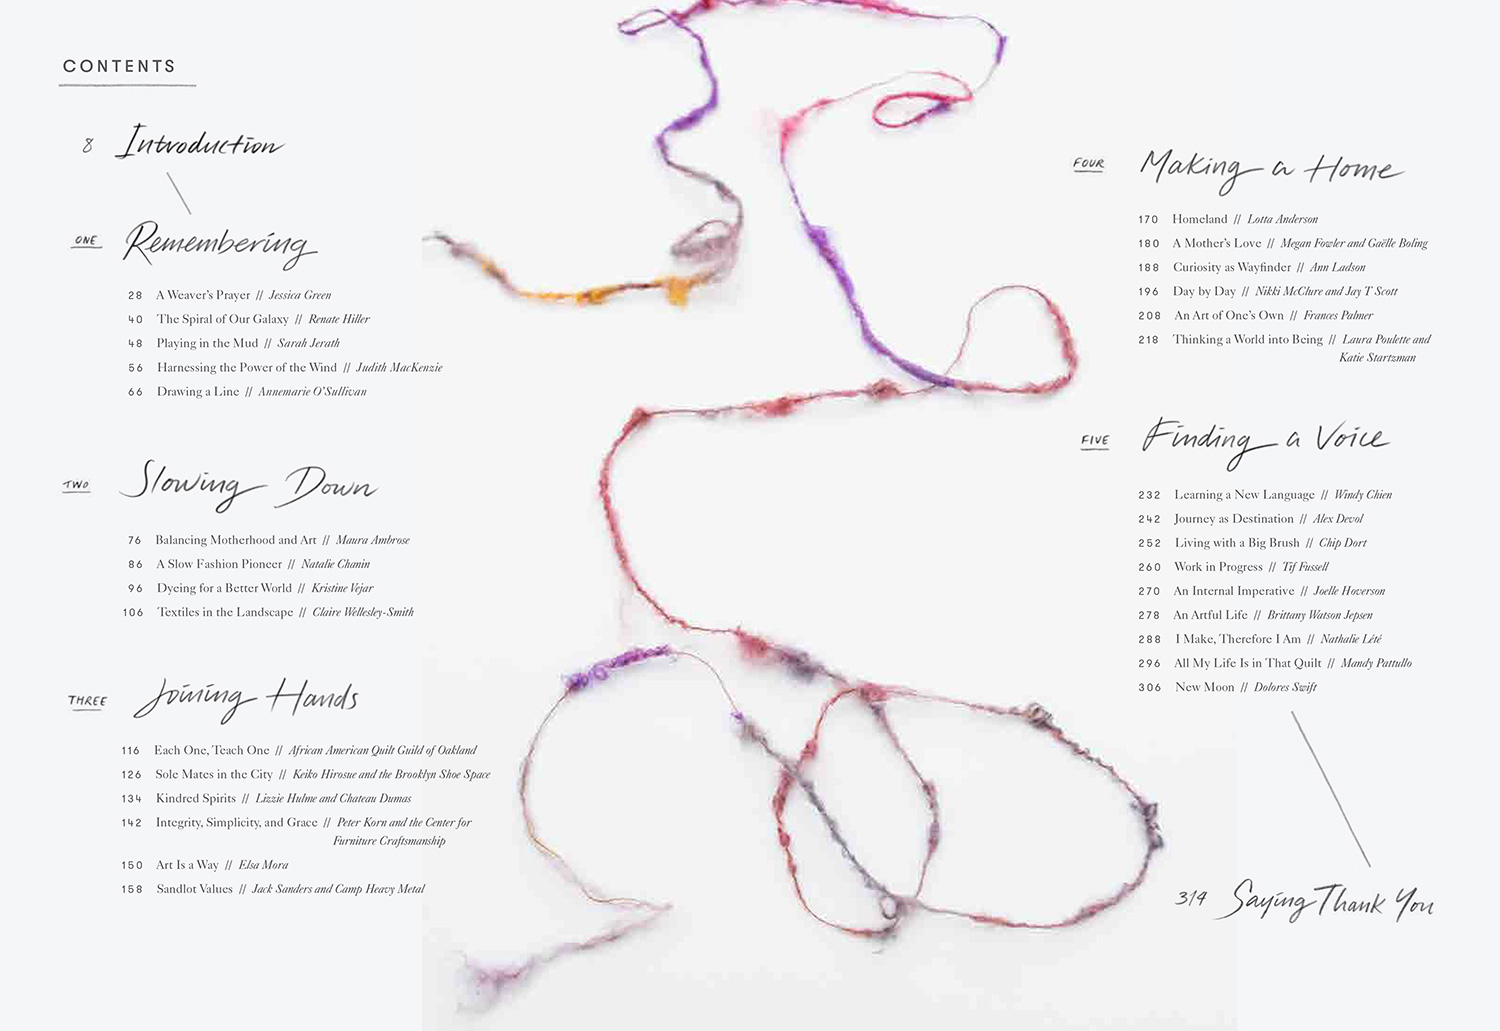 CONTENTS
8 Introduction
ONE Remembering
28 A Weaver's Prayer // Jessica Green
40 The Spiral of Our Galaxy // Renate Hiller
48 Playing in the Mud // Sarah Jerath
56 Harnessing the Power of the Wind // Judith MacKenzie
66 Drawing a Line // Annemarie O'Sullivan
TWO Slowing Down
76 Balancing Motherhood and Art // Maura Ambrose
86 A Slow Fashion Pioneer // Natalie Chanin
96 Dyeing for a Better World // Kristine Vejar
106 Textiles in the Landscape // Claire Wellesley-Smith
THREE Joining Hands
116 Each One, Teach One // African American Quilt Guild of Oakland
126 Sole Mates in the City // Keiko Hirosue and the Brooklyn Shoe Space
134 Kindred Spirits // Lizzie Hulme and Chateau Dumas
142 Integrity, Simplicity, and Grace // Peter Korn and the Center for
Furniture Craftsmanship
150 Art Is a Way // Elsa Mora
158 Sandlot Values // Jack Sanders and Camp Heavy Metal
FOUR Making a Home
170 Homeland // Lotta Anderson
180 A Mother's Love // Megan Fowler and Gaëlle Boling
188 Curiosity as Wayfinder // Ann Ladson
196 Day by Day // Nikki McClure and Jay T Scott
208 An Art of One's Own // Frances Palmer
218 Thinking a World into Being // Laura Poulette and
Katie Startzman
FIVE Finding a Voice
232 Learning a New Language // Windy Chien
242 Journey as Destination // Alex Devol
252 Living with a Big Brush // Chip Dort
260 Work in Progress // Tif Fussell
270 An Internal Imperative // Joelle Hoverson
278 An Artful Life // Brittany Watson Jepsen
288 I Make, Therefore I Am // Nathalie Lété
296 All My Life Is in That Quilt // Mandy Pattullo
306 New Moon // Dolores Swift
314 Saying Thank You